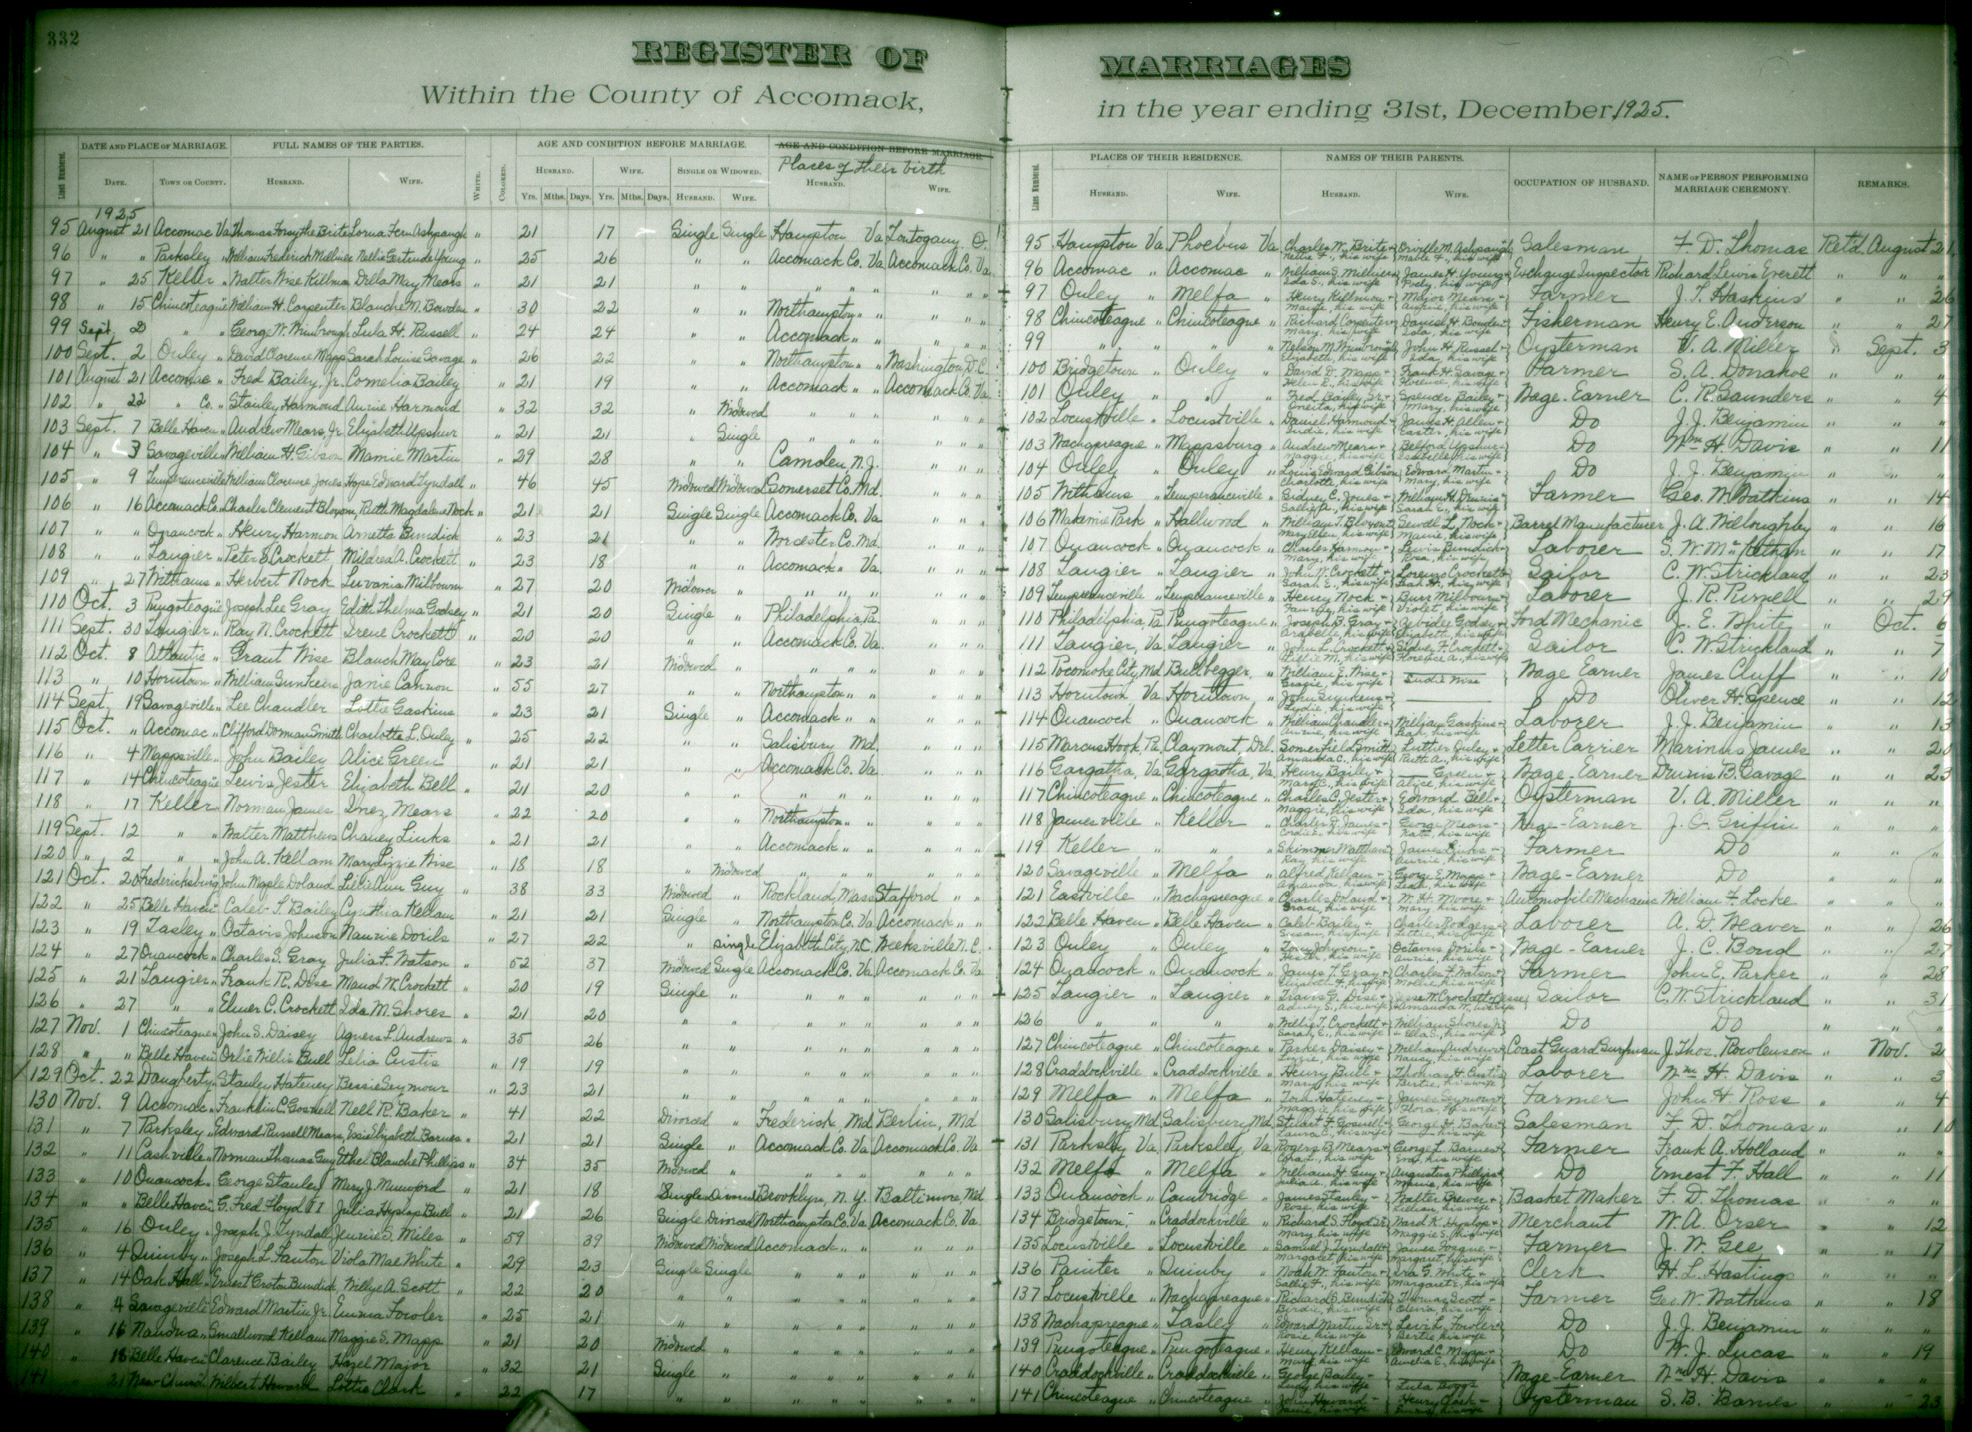 332
REGISTER OF MARRIAGES
Within the County of Accomack, in the year ending 31st, December, 1925.
DATE AND PLACE OF MARRIAGE. FULL NAMES OF THE PARTIES. AGE AND CONDITION BEFORE MARRIAGE. AGE AND CONDITION BEFORE MARRIAGE. PLACES OF THEIR RESIDENCE. NAMES OF THEIR PARENTS. OCCUPATION OF HUSBAND. NAME OF PERSON PERFORMING MARRIAGE CEREMONY. REMARKS.
Places of their birth
Line Numbers. DATE. TOWN OR COUNTY. HUSBAND. WIFE. WHITE. COLORED. HUSBAND. WIFE. SINGLE OR WIDOWED. HUSBAND. WIFE. Line Numbers. HUSBAND. WIFE. HUSBAND. WIFE.
Yrs. Mths. Days. Yrs. Mths. Days. HUSBAND. WIFE.
1925
95 August 21 Accomac Va Thomas Forsythe Brite Lorna Fern Ashpaugh " 21 17 Single Single Hampton Va Tontogany O. 95 Hampton Va Phoebus Va Charles W. Brite + his wife Orville M. Ashpaugh Mable F., his wife Salesman F. D. Thomas Retd. August 21
96 " " Parksley " William Frederick Nellie Gertrude Young " 25 26 " " Accomack Co. Va Accomack Co. Va 96 Accomac " Accomac " Ida S., his wife James H. Young + his wife Exchange Inspector Richard Lewis Everett " " "
97 " 25 Keller " Walter Wise Killmon Della May Mears " 21 21 " " " " " " " " 97 Onley " Melfa " Henry Killmon + his wife Major Mears + his wife Farmer J. T. Haskins " " 26
98 " 15 Chincoteague " William H. Carpenter Blanche M. Bowden " 30 22 " " Northampton " " " " " 98 Chincoteague " Chincoteague " Richard Carpenter + Mary, his wife Daniel H. Bowden + Ida, his wife Fisherman Henry E. Anderson " " 27
99 Sept. 2 " " George W. Lula H. Russell " 24 24 " " Accomack " " " " " 99 " " " " Nelson M. Elizabeth, his wife John H. Russell + Ida, his wife Oysterman V. A. Miller " Sept. 3
100 Sept. 2 Onley " David Clarence Mapp Sarah Louise Savage " 26 22 " " Northampton " " Washington, D.C. 100 Bridgetown " Onley " David D. Mapp + Helen E., his wife Frank H. Savage + Florence, his wife Farmer S. A. Donahoe " " "
101 August 21 Accomac " Fred Bailey, Jr. Cornelia Bailey " 21 19 " " Accomack " " Accomack Co. Va. 101 Onley " " " Fred Bailey, Sr. + his wife Spencer Bailey + Mary, his wife Wage-Earner C. R. Saunders " " 4
102 " 22 " Co. " Stanley Harmond Annie Harmond " 32 32 " Widowed " " " " " " 102 Locustville " Locustville " Daniel Harmond + his wife James H. Allen + his wife Do J. J. Benjamin " " "
103 Sept. 7 Belle Haven " Andrew Mears, Jr. Elizabeth Upshur " 21 21 " Single " " " " " " 103 Wachapreague " Mappsburg " Andrew Mears + Maggie, his wife Belford Upshur + his wife Do Wm H. Davis " " 11
104 " 3 Savageville " William H. Gibson Mamie Martin " 29 28 " " Camden, N.J. " " " 104 Onley " Onley " Louis Edward Gibson Charlotte, his wife Edward Martin + Mary, his wife Do J. J. Benjamin " " "
105 " 9 Temperanceville " William Clarence Jones Hope Edward Tyndall " 46 45 Widowed Widowed Somerset Co. Md. " " " 105 Withams " Temperanceville " Sidney C. Jones + Sallie A., his wife William H. Dennis + Sarah E., his wife Farmer Geo. W. Watkins " " 14
106 " 16 Accomack Co. " Charles Clement Bloxom, Ruth Magdalene Nock " 21 21 Single Single Accomack Co. Va. " " " 106 Makemie Park " Hallwood " William T. Bloxom + Mary Alice, his wife Sewell L. Nock + Mamie, his wife Barrel Manufacturer J. A. Willoughby " " 16
107 " " Onancock " Henry Harmon Arnetta Bundick " 23 21 " " Worcester Co. Md. " " " 107 Onancock " Onancock " Charles Harmon + his wife Lewis Bundick + Rosa, his wife Laborer S. W. " " 17
108 " " Tangier " Peter S. Crockett Mildred A. Crockett " 23 18 " " Accomack " Va. " " " 108 Tangier " Tangier " John W. Crockett + Sarah E., his wife Lorenzo Crockett + his wife Sailor C. W. Strickland " " 23
109 " 27 Withams " Herbert Nock Luvania Milbourn " 27 20 Widower " " " " " " " 109 Temperanceville " Temperanceville " Henry Nock + his wife Burr Milbourn + Violet, his wife Laborer J. R. Russell " " 29
110 Oct. 3 Pungoteague " Joseph Lee Gray Edith Thelma Godsey " 21 20 Single " Philadelphia, Pa. " " " 110 Philadelphia, Pa. Pungoteague " Joseph B. Gray + Arabelle, his wife Godsey + Elizabeth, his wife Ford Mechanic J. E. White " Oct. 6
111 Sept. 30 Tangier " Ray N. Crockett Irene Crockett " 20 20 " " Accomack Co. Va. " " " 111 Tangier, Va Tangier " John L. Crockett + Lillie M., his wife Sidney F. Crockett + Florence A., his wife Sailor C. W. Strickland " " 7
112 Oct. 8 Atlantic " Grant Wise Blanch May Core " 23 21 Widowed " " " " " " " 112 Pocomoke City, Md Bullbegger, " William E. Wise + his wife Sudie Wise Wage Earner James Cluff " " 10
113 " 10 Horntown " William Gunkins Janie Cannon " 55 27 " " Northampton " " " " " 113 Horntown Va Horntown " John Gunkins + Lydie, his wife Do Oliver H. Spence " " 12
114 Sept. 19 Savageville " Lee Chandler Lottie Gaskins " 23 21 Single " Accomack " " " " " 114 Onancock " Onancock " William Chandler + Annie, his wife William Gaskins + Leah, his wife Laborer J. J. Benjamin " " 13
115 Oct. " Accomac " Clifford Dorman Smith Charlotte L. Onley " 25 22 " " Salisbury Md. " " " 115 Marcus Hook, Pa. Claymont, Del. Somerfield Smith Amanda C., his wife Luther Onley + Ruth A., his wife Letter Carrier Marinus James " " 20
116 " 4 Mappsville " John Bailey Alice Green " 21 21 " " Accomack Co. Va. " " " 116 Gargatha, Va Gargatha, Va Henry Bailey + Mary C., his wife Green + Alice, his wife Wage-Earner Dennis B. Savage " " 23
117 " 14 Chincoteague " Lewis Jester Elizabeth Bell " 21 20 " " " " " " " " 117 Chincoteague " Chincoteague " Charles C. Jester + Maggie, his wife Edward Bell + Ida, his wife Oysterman V. A. Miller " " "
118 " 17 Keller " Norman James Inez Mears " 22 20 " " Northampton " " " " " 118 Jamesville " Keller " Charles T. James + his wife George Mears + Kate, his wife Wage-Earner J. C. Griffin " " "
119 Sept. 12 " " Walter Matthews Chaney Links " 21 21 " " Accomack " " " " " 119 Keller " " " Skinner Matthews + Ray, his wife James Links + Annie, his wife Farmer Do " " "
120 " 2 " " John A. Kellam Mary Lizzie Wise " 18 18 " Widowed " " " " " " 120 Savageville " Melfa " Alfred Kellam + Amanda, his wife George E. Mapp + Leah, his wife Wage-Earner Do " " "
121 Oct. 20 Fredericksburg John Maple Doland Lillie Ann Guy " 38 33 Widowed " Rockland, Mass Stafford " " 121 Eastville " Wachapreague " Charles Doland + Grace, his wife W. H. Moore + Mary, his wife Automobile Mechanic William F. Locke " " "
122 " 25 Belle Haven " Caleb T. Bailey Cynthia Kellam " 21 21 Single " Northampton Co. Va Accomack " " 122 Belle Haven " Belle Haven " Caleb Bailey + Susan, his wife Charles Rodgers + Lettie, his wife Laborer A. D. Weaver " " 26
123 " 19 Tasley " Octavis Johnson Nannie Dorils " 27 22 " single Elizabeth City, N.C. Weeksville N.C. 123 Onley " Onley " Tony Johnson + Hester, his wife Octavus Dorils + Annie, his wife Wage-Earner J. C. Bond " " 27
124 " 27 Onancock " Charles S. Gray Julia F. Watson " 52 37 Widowed Single Accomack Co. Va Accomack Co. Va 124 Onancock " Onancock " James T. Gray + Elizabeth F., his wife Charles F. Watson + Mollie, his wife Farmer John E. Parker " " 28
125 " 21 Tangier " Frank R. Dise Maud W. Crockett " 20 19 Single " " " " " " " 125 Tangier " Tangier " Travis G. Dise + his wife Jesse W. Crockett + his wife Sailor C. W. Strickland " " 31
126 " 27 " " Elmer C. Crockett Ida M. Shores " 21 20 " " " " " " " " 126 " " " " Willie T. Crockett + Sarah E., his wife William Shores + Ella S., his wife Do Do " " "
127 Nov. 1 Chincoteague " John S. Daisey Agness L. Andrews " 35 26 " " " " " " " " 127 Chincoteague " Chincoteague " Parker Daisey + his wife William Andrews + Nancy, his wife Coast Guard Surfman J. Thos. Rowlenson " Nov. 2
128 " " Belle Haven " Orlie Willis Bull Lelia Custis " 19 19 " " " " " " " " 128 Craddockville " Craddockville " Henry Bull + Mary, his wife Thomas H. Custis + Bertie, his wife Laborer Wm H. Davis " " 3
129 Oct. 22 Daugherty " Stanley Hateney Bessie Seymour " 23 21 " " " " " " " " 129 Melfa " Melfa " Tom Hateney + Maggie, his wife James Seymour + Flora, his wife Farmer John H. Ross " " 4
130 Nov. 9 Accomac " Franklin C. Gosnell Nell R. Baker " 41 22 Divorced " Frederick Md Berlin, Md 130 Salisbury, Md Salisbury, Md Stuart F. Gosnell + Laura C., his wife George H. Baker + his wife Salesman F. D. Thomas " " 10
131 " 7 Parksley " Edward Russell Mears, Essie Elizabeth Barnes " 21 21 Single " Accomack Co. Va Accomack Co. Va 131 Parksley Va, Parksley, Va Rogers B. Mears + Cora L., his wife George L. Barnes + Eva, his wife Farmer Frank A. Holland " " "
132 " 11 Cashville " Norman Thomas Guy Ethel Blanche Phillips " 34 35 Widowed " " " " " " " 132 Melfa " Melfa " William H. Guy + his wife Augustus Phillips + Mamie, his wife Do Ernest F. Hall " " 11
133 " 10 Onancock " George Stanley Mary J. Mumford " 21 18 Single Divorced Brooklyn, N.Y. Baltimore, Md 133 Onancock " Cambridge " James Stanley + Rose, his wife Walter Brewer + Lillian, his wife Basket Maker F. D. Thomas " " "
134 " " Belle Haven " G. Fred Floyd Julia Hyslop Bull " 21 26 Single Divorced Northampton Co. Va Accomack Co. Va 134 Bridgetown, " Craddockville " Richard S. Floyd Sr + Mary, his wife Ward K. Hyslop + Maggie S., his wife Merchant W. A. Orser " " 12
135 " 16 Onley " Joseph J. Tyndall Jennie S. Miles " 59 39 Widowed Widowed Accomack " " " " " 135 Locustville " Locustville " Samuel J. Tyndall + Margaret, his wife James + Margaret, his wife Farmer J. W. Gee " " 17
136 " 4 Quinby " Joseph L. Fanton Viola Mae White " 29 23 Single Single " " " " " " 136 Painter " Quinby " Noah W. Fanton + Sallie F., his wife Ira G. White + Margaret, his wife Clerk H. L. Hastings " " "
137 " 14 Oak Hall " Ernest Croton Bundick Willye A. Scott " 22 20 " " " " " " " " 137 Locustville " Wachapreague " Richard B. Bundick Birdie, his wife Thomas Scott + Elena, his wife Farmer Geo. W. Watkins " " 18
138 " 4 Savageville " Edward Martin Jr. Emma Fowler " 25 21 " " " " " " " " 138 Wachapreague " Tasley " Edward Martin Sr. + Rosie, his wife Levi L. Fowler + Bertie, his wife Do J. J. Benjamin " " "
139 " 16 Nandua " Smallwood Kellam Maggie S. Mapp " 21 20 Widowed " " " " " " " 139 Pungoteague " Pungoteague " Henry Kellam + Mary, his wife Edward C. Mapp + Amelia E., his wife Do W. J. Lucas " " 19
140 " 18 Belle Haven " Clarence Bailey Hazel Major " 32 21 Single " " " " " " " 140 Craddockville " Craddockville " George Bailey + Lucy, his wife Lula Boggs Wage-Earner Wm H. Davis " " "
141 " 21 New Church " Wilbert Howard Lottie Clark " 22 17 " " " " " " " " 141 Chincoteague " Chincoteague " John Howard + Janie, his wife Henry Clark + his wife Oysterman S. B. Barnes " " 23